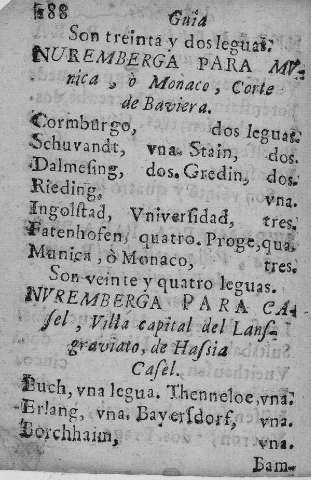 188 Guia
Son treinta y dos leguas.
NUREMBERGA PARA MV-
nica, ò Monaco, Corte
de Baviera.
Cormburgo, dos leguas.
Schuvandt, vna. Stain, dos.
Dalmesing, dos. Gredin, dos.
Rieding, vna.
Ingolstad, Vniversidad, tres.
Fatenhofen, quatro. Proge, qua.
Munica, ò Monaco, tres.
Son veinte y quatro leguas.
NVREMBERGA PARA CA-
sel, Villa capital del Lans-
graviato, de Hassia
Casel.
Buch, vna legua. Thenneloe, vna.
Erlang, vna. Bayersdorf, vna.
Borchhaim, vna.
Bam-